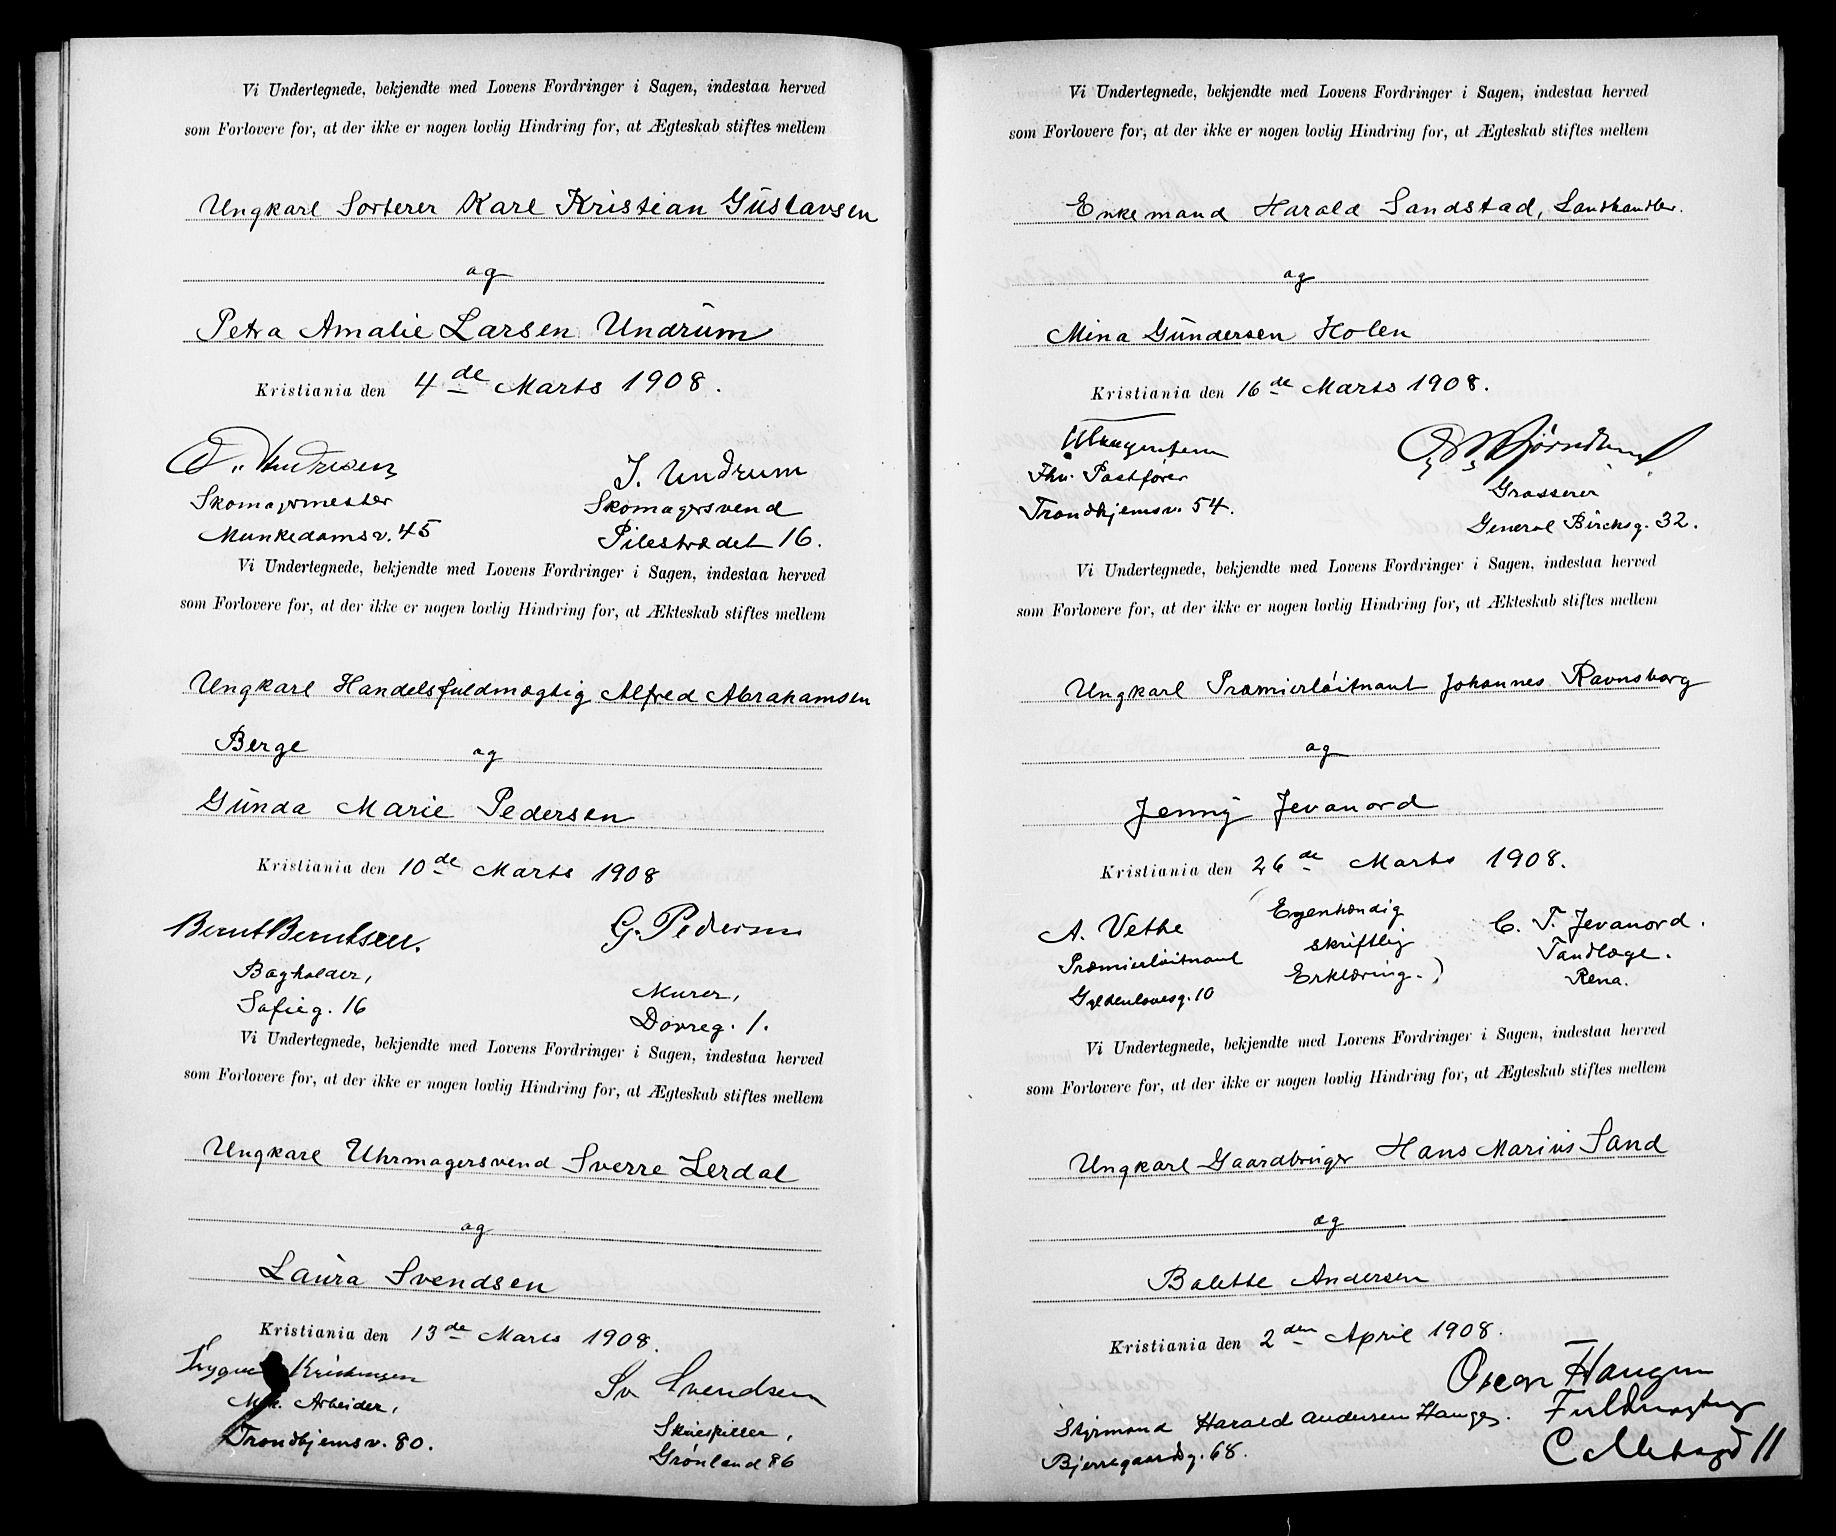 Vi Undertegnede, bekjendte med Lovens Fordringer i Sagen, indestaa herved
som Forlovere for, at der ikke er nogen lovlig Hindring for, at Ægteskab stiftes mellem
Ungkarl Sorterer Karl Kristian Gustavsen
og
Petra Amalie Larsen Undrum
Kristiania den 4de Marts 1908.
J. Undrum
Skomagermester
Skomagersvend
Munkedamsv. 45
Pilestrædet 16.
Vi Undertegnede, bekjendte med Lovens Fordringer i Sagen, indestaa herved
som Forlovere for, at der ikke er nogen lovlig Hindring for, at Ækteskab stiftes mellem
Ungkarl Handelsfuldmægtig Alfred Abrahamsen
Berge og
Gunda Marie Pedersen
Kristiania den 10de Marts 1908
Bernt Berntsen.
G. Pedersen
Bogholder,
Murer,
Sofieg. 16
Dovreg. 1.
Vi Undertegnede, bekjendte med Lovens Fordringer i Sagen, indestaa herved
som Forlovere for, at der ikke er nogen lovlig Hindring for, at Ægteskab stiftes mellem
Ungkarl Uhrmagersvend Sverre Lerdal
og
Laura Svendsen
Kristiania den 13de Marts 1908.
Sv Svendsen
Arbeider,
Skuespiller,
Trondhjemsv. 80.
Grønland 86
Vi Undertegnede, bekjendte med Lovens Fordringer i Sagen, indestaa herved
som Forlovere for, at der ikke er nogen lovlig Hindring for, at Ægteskab stiftes mellem
Enkemand Harald Sandstad, Landhandler.
og
Mina Gundersen Holen
Kristiania den 16de Marts 1908.
Fhv. Postfører
Grosserer
Trondhjemsv. 54.
General Birchsg. 32.
Vi Undertegnede, bekjendte med Lovens Fordringer i Sagen, indestaa herved
som Forlovere for, at der ikke er nogen lovlig Hindring for, at Ækteskab stiftes mellem
Ungkarl Premierløitnant Johannes Ravnsborg
og
Jenny Jevanord
Kristiania den 26de Marts 1908.
A. Vethe
(Egenhændig
C. T. Jevanord.
Præmierløitnant
skriftlig
Tandlæge.
Gyldenløvesg. 10
Erklæring.)
Rena.
Vi Undertegnede, bekjendte med Lovens Fordringer i Sagen, indestaa herved
som Forlovere for, at der ikke er nogen lovlig Hindring for, at Ægteskab stiftes mellem
Ungkarl Gaardbruger Hans Marius Sand
og
Balette Andersen
Kristiania den 2den April 1908.
Oscar Haugen
Styrmand Harald Andersen Hauges.
Fuldmægtig
Bjerregaardsg. 68.